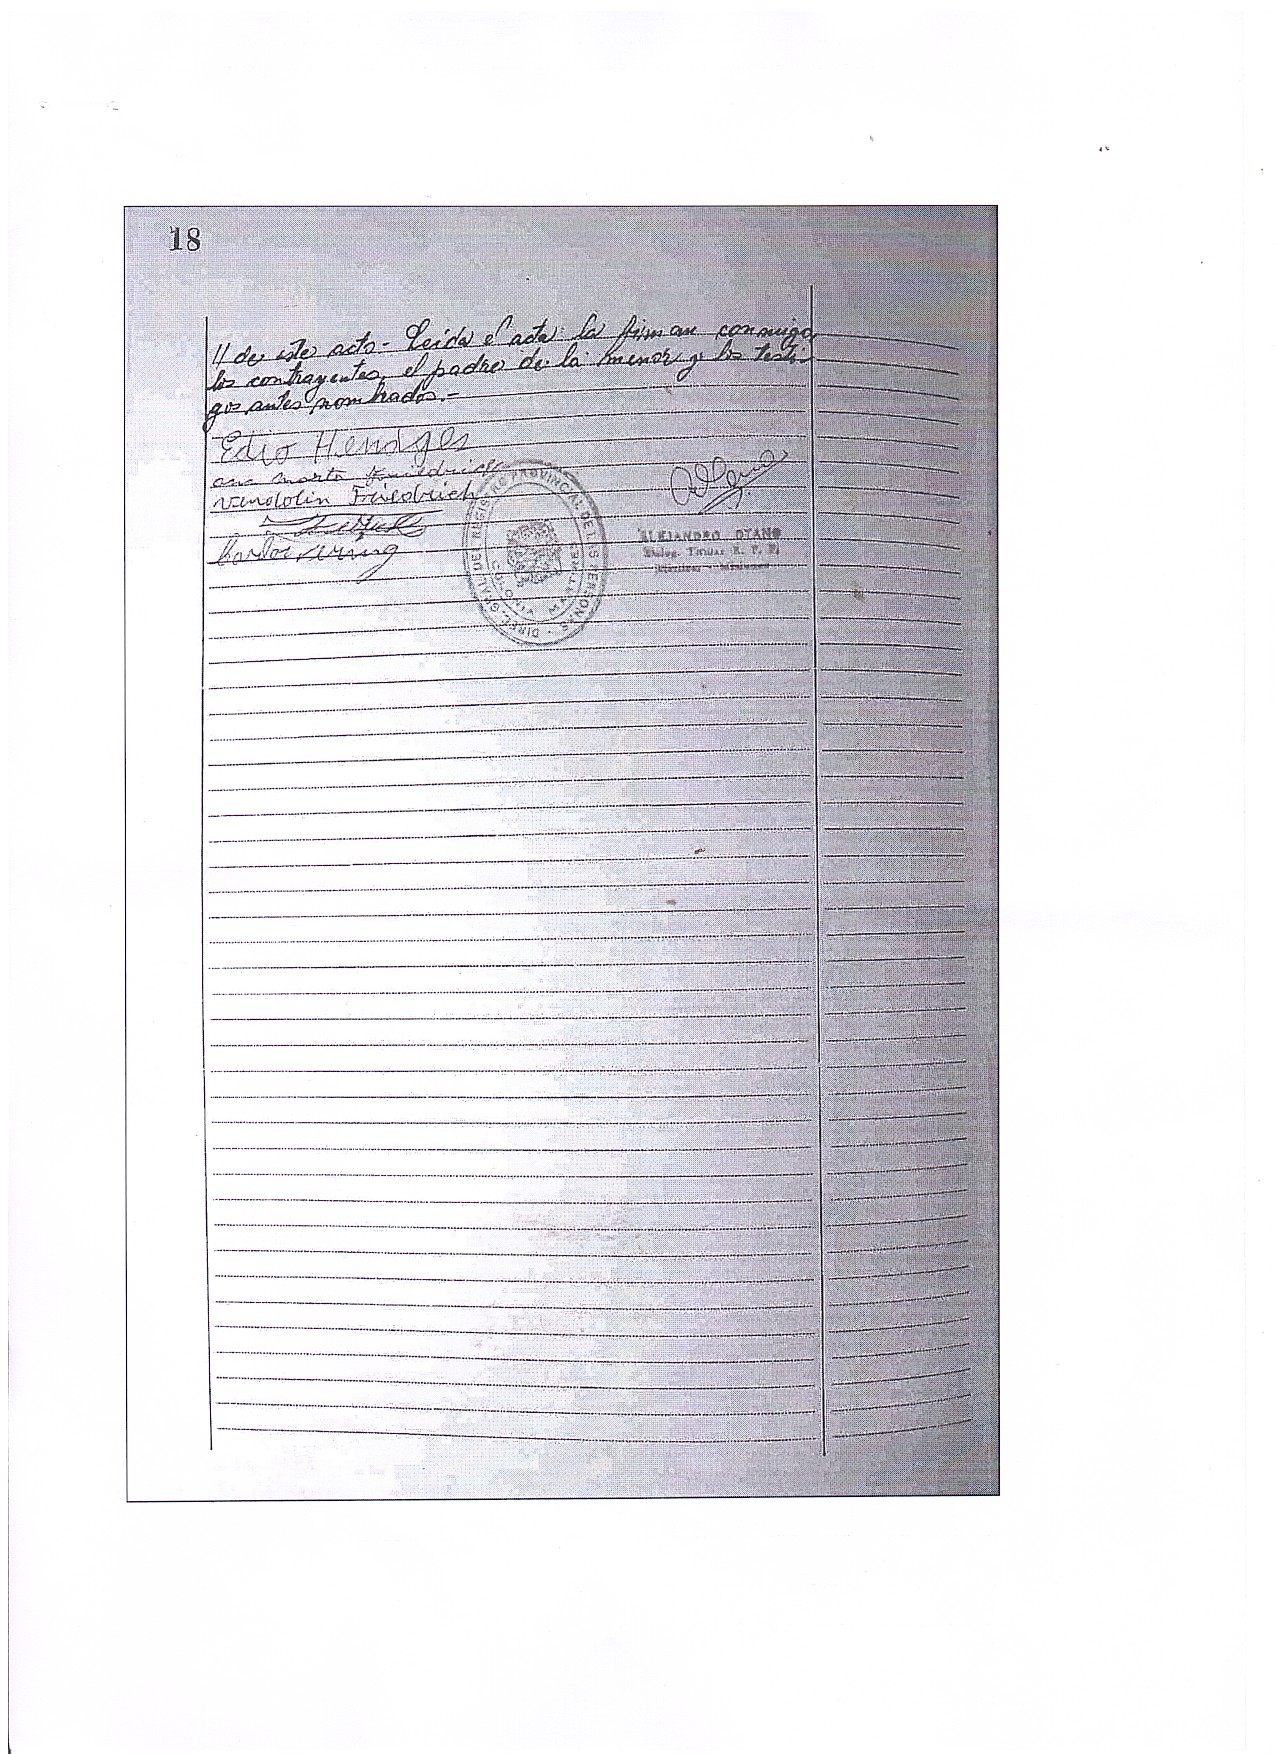 18
// de este acto.- Leída el acta la firman conmigo
los contrayentes, el padre de la menor y los testi-
gos antes nombrados.-
Edio Hendges
ana marta Friedrich
Vendolin Friedrich
DIREC. GRAL. DEL REGISTRO PROVINCIAL DE LAS PERSONAS
COLONIA
ALEJANDRO OYANO
Deleg. Titular R. P. P.
Misiones